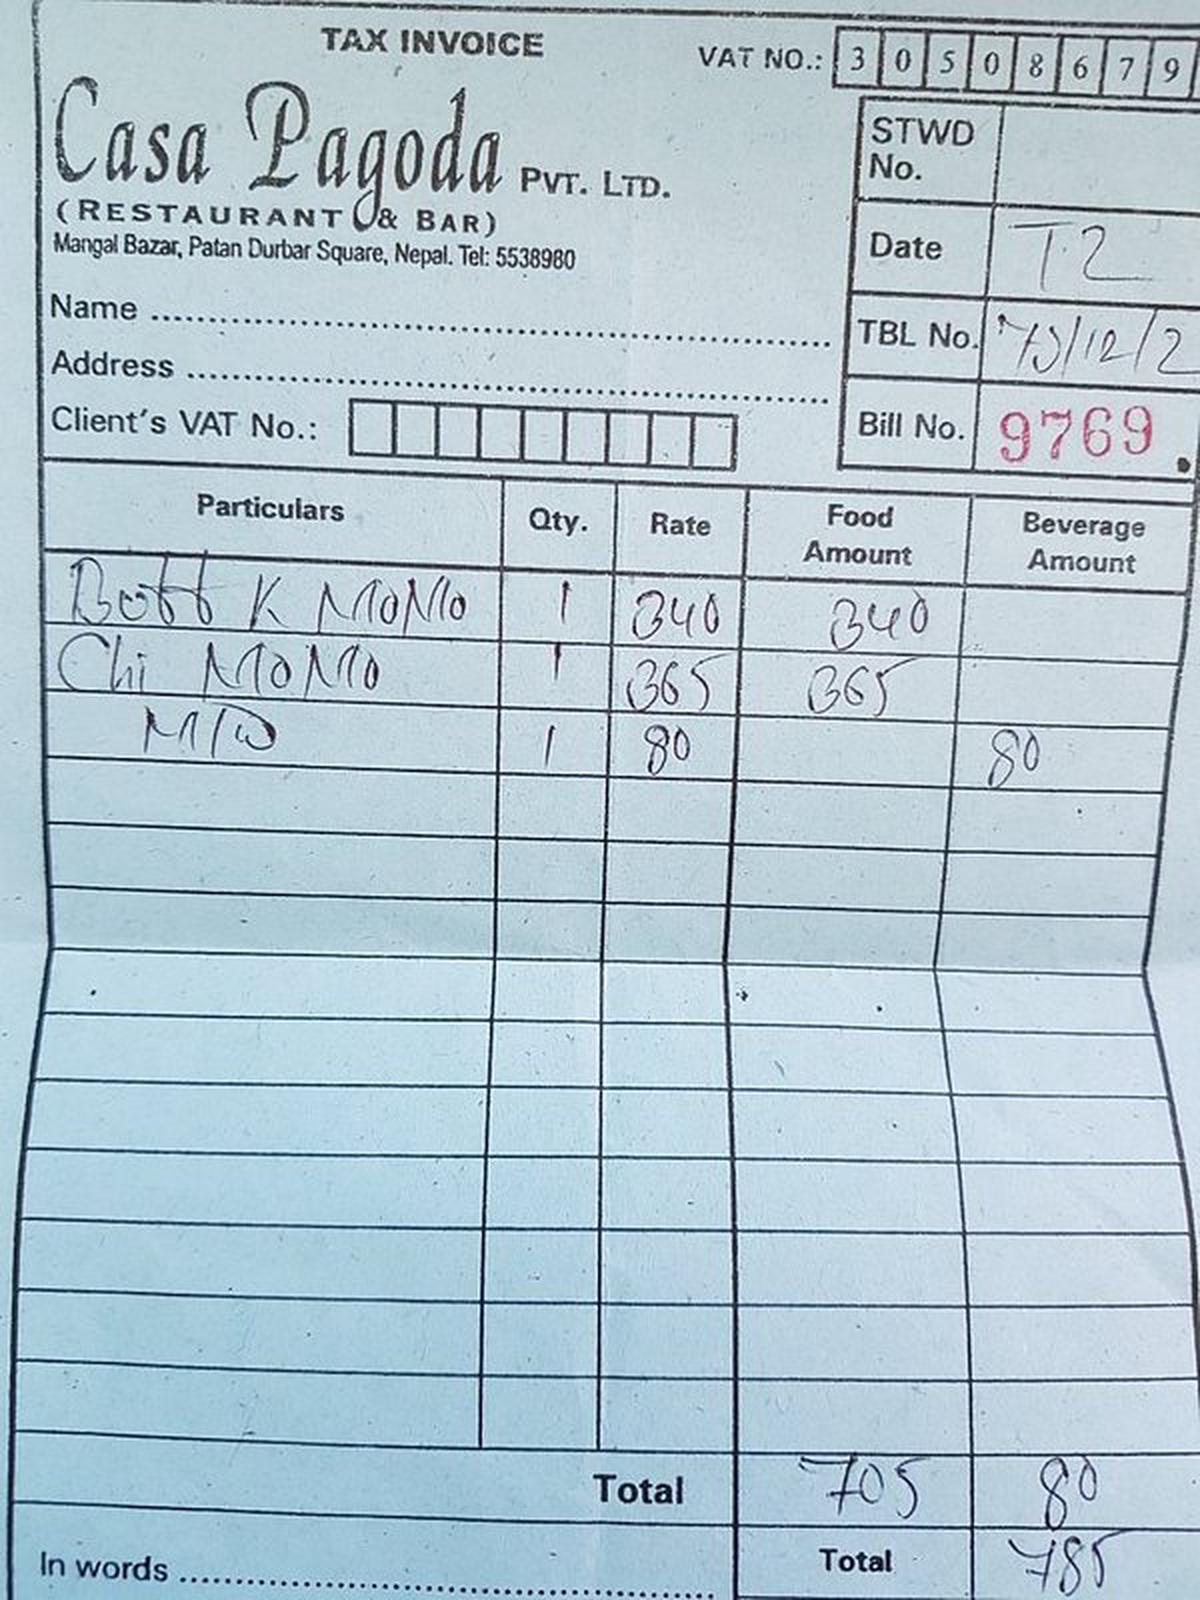 TAX INVOICE VAT NO.: 3 0 5 0 8 6 7 9
Casa Pagoda PVT. LTD.
(RESTAURANT & BAR)
Mangal Bazar, Patan Durbar Square, Nepal. Tel: 5538980
STWD No.
Date T2
Name ........
TBL No. /12/2
Address ........
Client's VAT No.:
Bill No. 9769
Particulars Qty. Rate Food Amount Beverage Amount
Buff K MoMo 1 340 340
Chi MoMo 1 365 365
M/W 1 80 80
Total 705 80
In words ........ Total 785